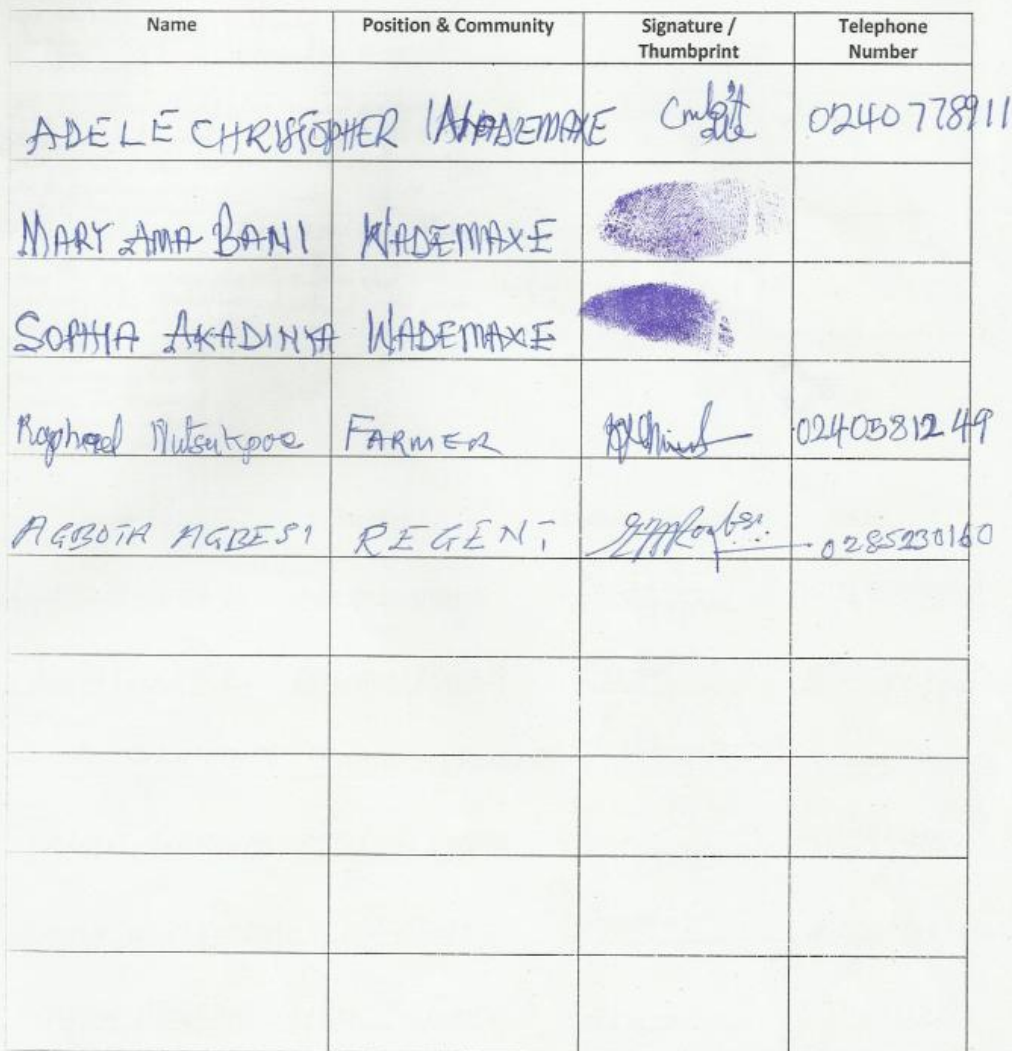 Name Position & Community Signature / Thumbprint Telephone Number
ADELE CHRISTOPHER WADEMAXE 0240778911
MARY AMA BANI WADEMAXE
SOPHIA AKADINYA WADEMAXE
Raphael Nutsukpoe FARMER 0240581249
AGBOTA AGBESI REGENT 0285230160